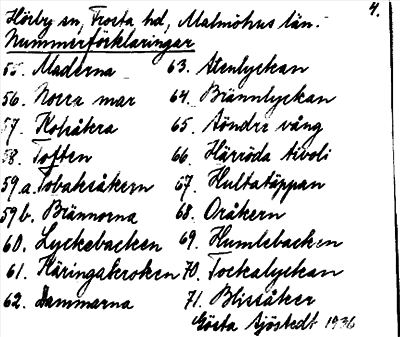 4.
Hörby sn, Frosta hd, Malmöhus län.
Nummerförklaringar
55. Maderna
56. Norra mar
57. Kolsåkra
58. Toften
59 a. Tobaksåkern
59 b. Brännorna
60. Lyckebacken
61. Käringakroken
62. Dammarna
63. Stenlyckan
64. Brännlyckan
65. Söndre vång
66. Häriöda tivoli
67. Hultatäppan
68. Oråkern
69. Humlebacken
70. Tockalyckan
71. Blissåker
Gösta Sjöstedt 1936